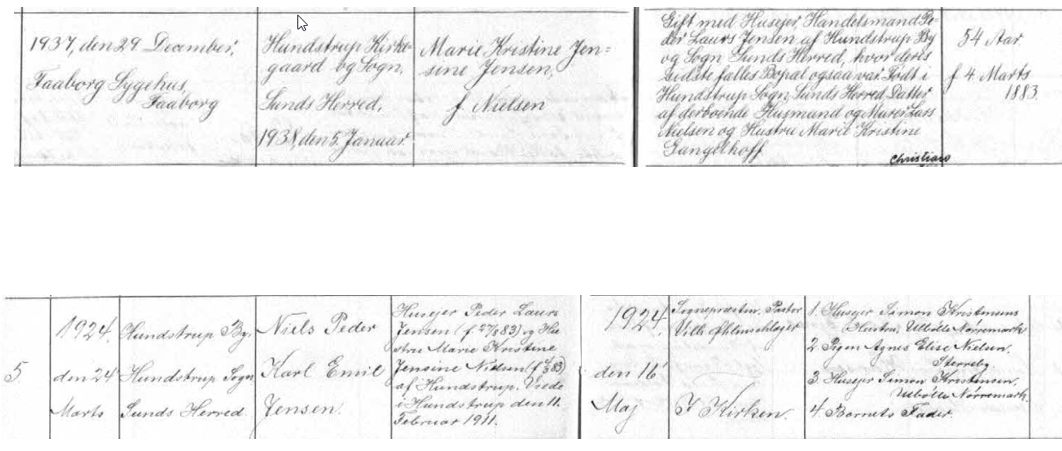 1937, den 29. December,
Faaborg Sygehus,
Faaborg
Hundstrup Kirke-
gaard og Sogn,
Sunds Herred,
1938, den 5. Januar.
Marie Kristine Jen=
sine Jensen,
f. Nielsen
Gift med Husejer, Handelsmand Pe-
der Laurs Jensen af Hundstrup By
og Sogn, Sunds Herred, hvor deres
sidste fælles Bopæl ogsaa var. Født i
Hundstrup Sogn, Sunds Herred. Datter
af derboende Husmand og Murer Lars
Nielsen og Hustru Marie Kristine
Gangelhoff.
Christians
54 Aar.
f. 4 Marts
1883.
5.
1924.
den 24'
Marts
Hundstrup By,
Hundstrup Sogn
Sunds Herred.
Niels Peder
Karl Emil
Jensen.
Husejer Peder Laurs
Jensen (f. 83) og Hu-
stru Marie Kristine
Jensine Nielsen (f. 83)
af Hundstrup. Viede
i Hundstrup den 11.
Februar 1911.
1924.
den 16'
Maj
Sognepræsten, Pastor
Øhlenschlæger
I Kirken.
1. Husejer Simon Kristensens
Hustru, Ulbølle Nørremark
2. Pigen Agnes Elise Nielsen,
3. Husejer Simon Kristensen,
Ulbølle Nørremark.
4. Barnets Fader.